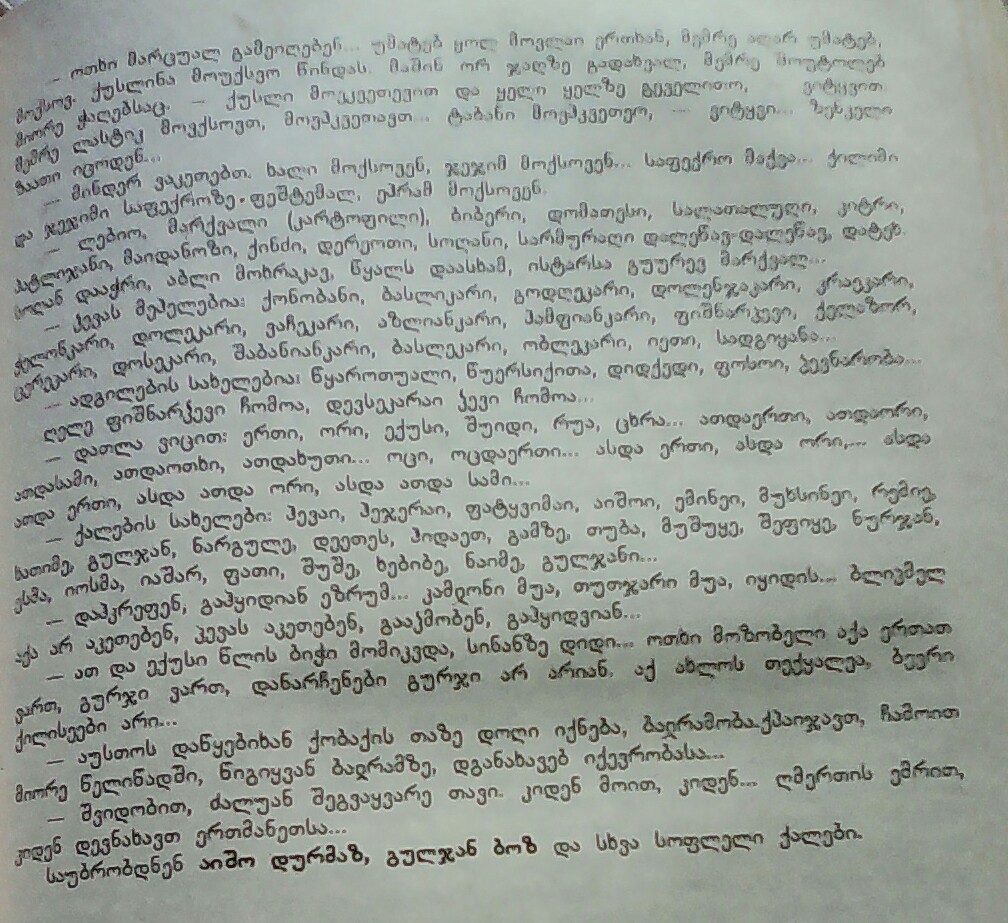 — ოთხი მარცუალ გამეილებენ... უმატებ ყოლ მოვლაი ერთხან, მემრე აღარ უმატებ,
მოქსოვ. ქუსლინა მოუქსვო წინდას. მაშინ ორ ჯაღზე გადახვალ, მემრე მოუტოლებ
მიორე ჭაღებსაც. — ქუსლი მოვკვეთევით და ყელი ყელზე გეველითო, — ვიტყვით.
მემრე ლასტიკ მოვქსოვთ, მოვჰკვეთავთ... ტაბანი მოვჰკვეთეო, — ვიტყვი... ზესკელი
ზაათი იცოდენ...
— მინდერ ვაკეთებთ. ხალი მოქსოვენ, ჯეჯიმ მოქსოვენ... საფექრო მაქვა... ქილიმი
და ჯეჯიმი საფექროზე. ფეშტემალ, ეჰრამ მოქსოვენ.
— ლებიო, მარქვალი (კარტოფილი), ბიბერი, დომათესი, სალათალუღი, კიტრი,
პატლიჯანი, მაიდანოზი, ქინძი, დერეოთი, სოღანი, სარმურაღი დალეწავ-დალეწავ, დატეხ.
სოღან დააჭრი, აბლი მოხრაკავ, წყალს დაასხამ, ისტარსა გუურევ მარქვალ...
— ჰევას მეჰელებია: ქონობანი, ბასლიკარი, გოდლეკარი, დოლენჯაკარი, კრავკარი,
დოლეკარი, ვაჩეკარი, აზლიანკარი, ჰამფიანკარი, ფიშნარჰევი, ქელაზორ,
ცერეკარი, დოსეკარი, შაბანიანკარი, ბასლეკარი, ობლეკარი, იეთი, სადგიყანა...
— ადგილების სახელებია: წყაროთუალი, წუერსიქითა, დიდქედი, ფოსოი, ჰევნარობა...
ღელე ფიშნარჰევი ჩომოა, დევსეკარაი ჰევი ჩომოა...
— დათლა ვიცით: ერთი, ორი, ექუსი, შუიდი, რუა, ცხრა... ათდაერთი, ათდაორი,
ათდასამი, ათდაოთხი, ათდახუთი... ოცი, ოცდაერთი... ასდა ერთი, ასდა ორი,... ასდა
ათდა ერთი, ასდა ათდა ორი, ასდა ათდა სამი...
— ქალების სახელები: ჰევაი, ჰეჯერაი, ფატყვიმაი, აიშოი, ემინეი, მუხსინეი, რემიე,
ხათიმე, გულჯან, ნარგულე, დეეთეს, ჰიდაეთ, გამზე, თუბა, მუშუყე, შეფიყე, ნურჯან,
ესმა, იოსმა, იაშარ, ფათი, შუშე, ხებიბე, ნაიმე, გულჯანი...
— დაჰკრეფენ, გაჰყიდიან ეზრუმ... კამჲონი მუა, თუთჯარი მუა, იყიდის... ბლივმელ
აქა არ აკეთებენ, ჰევას აკეთებენ, გააკმობენ, გაჰყიდვიან...
— ათ და ექუსი წლის ბიჭი მომიკვდა, სინანზე დიდი... ოთხი მოზობელი აქა ერთათ
ვართ, გურჯი ვართ, დანარჩენები გურჯი არ არიან. აქ ახლოს თექყალეა, ბევრი
ქილისეები არი...
— აუსთოს დაწყებიხან ქობაქის თაზე დოლი იქნება, ბაჲრამობა.ქჰაიჯავთ, ჩამოით
მიორე წელიწადში, წიგიყვან ბაჲრამზე, დგანახავებ იქევრობასა...
— შვიდობით, ძალუან შეგვაყვარე თავი. კიდენ მოით, კიდენ... ღმერთის ემრით,
კიდენ დევნახავთ ერთმანეთსა...
საუბრობდნენ აიშო დურმაზ, გულჯან ბოზ და სხვა სოფლელი ქალები.